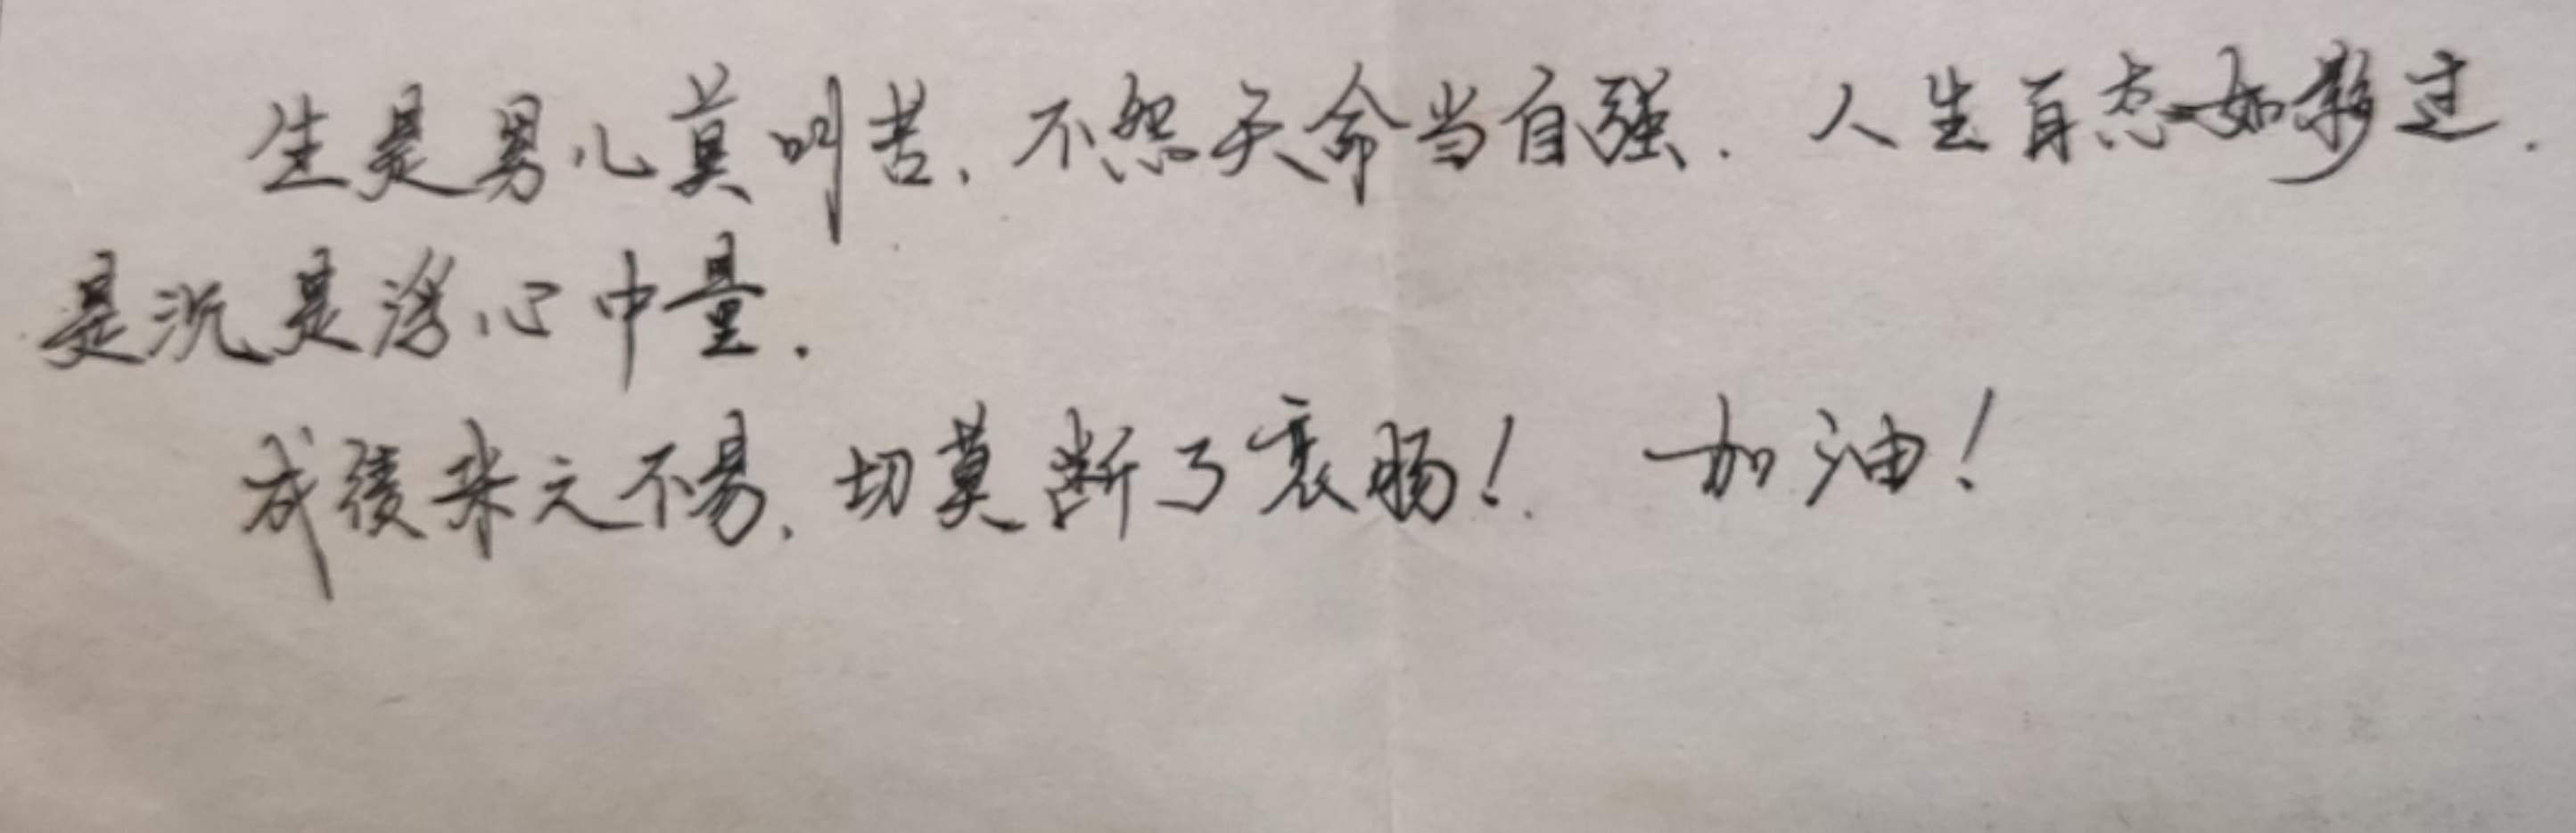 生是男儿莫叫苦,不怨天命当自强. 人生百态如影过.
是沉是浮心中量.
成绩来之不易,切莫断了衷肠! 加油!